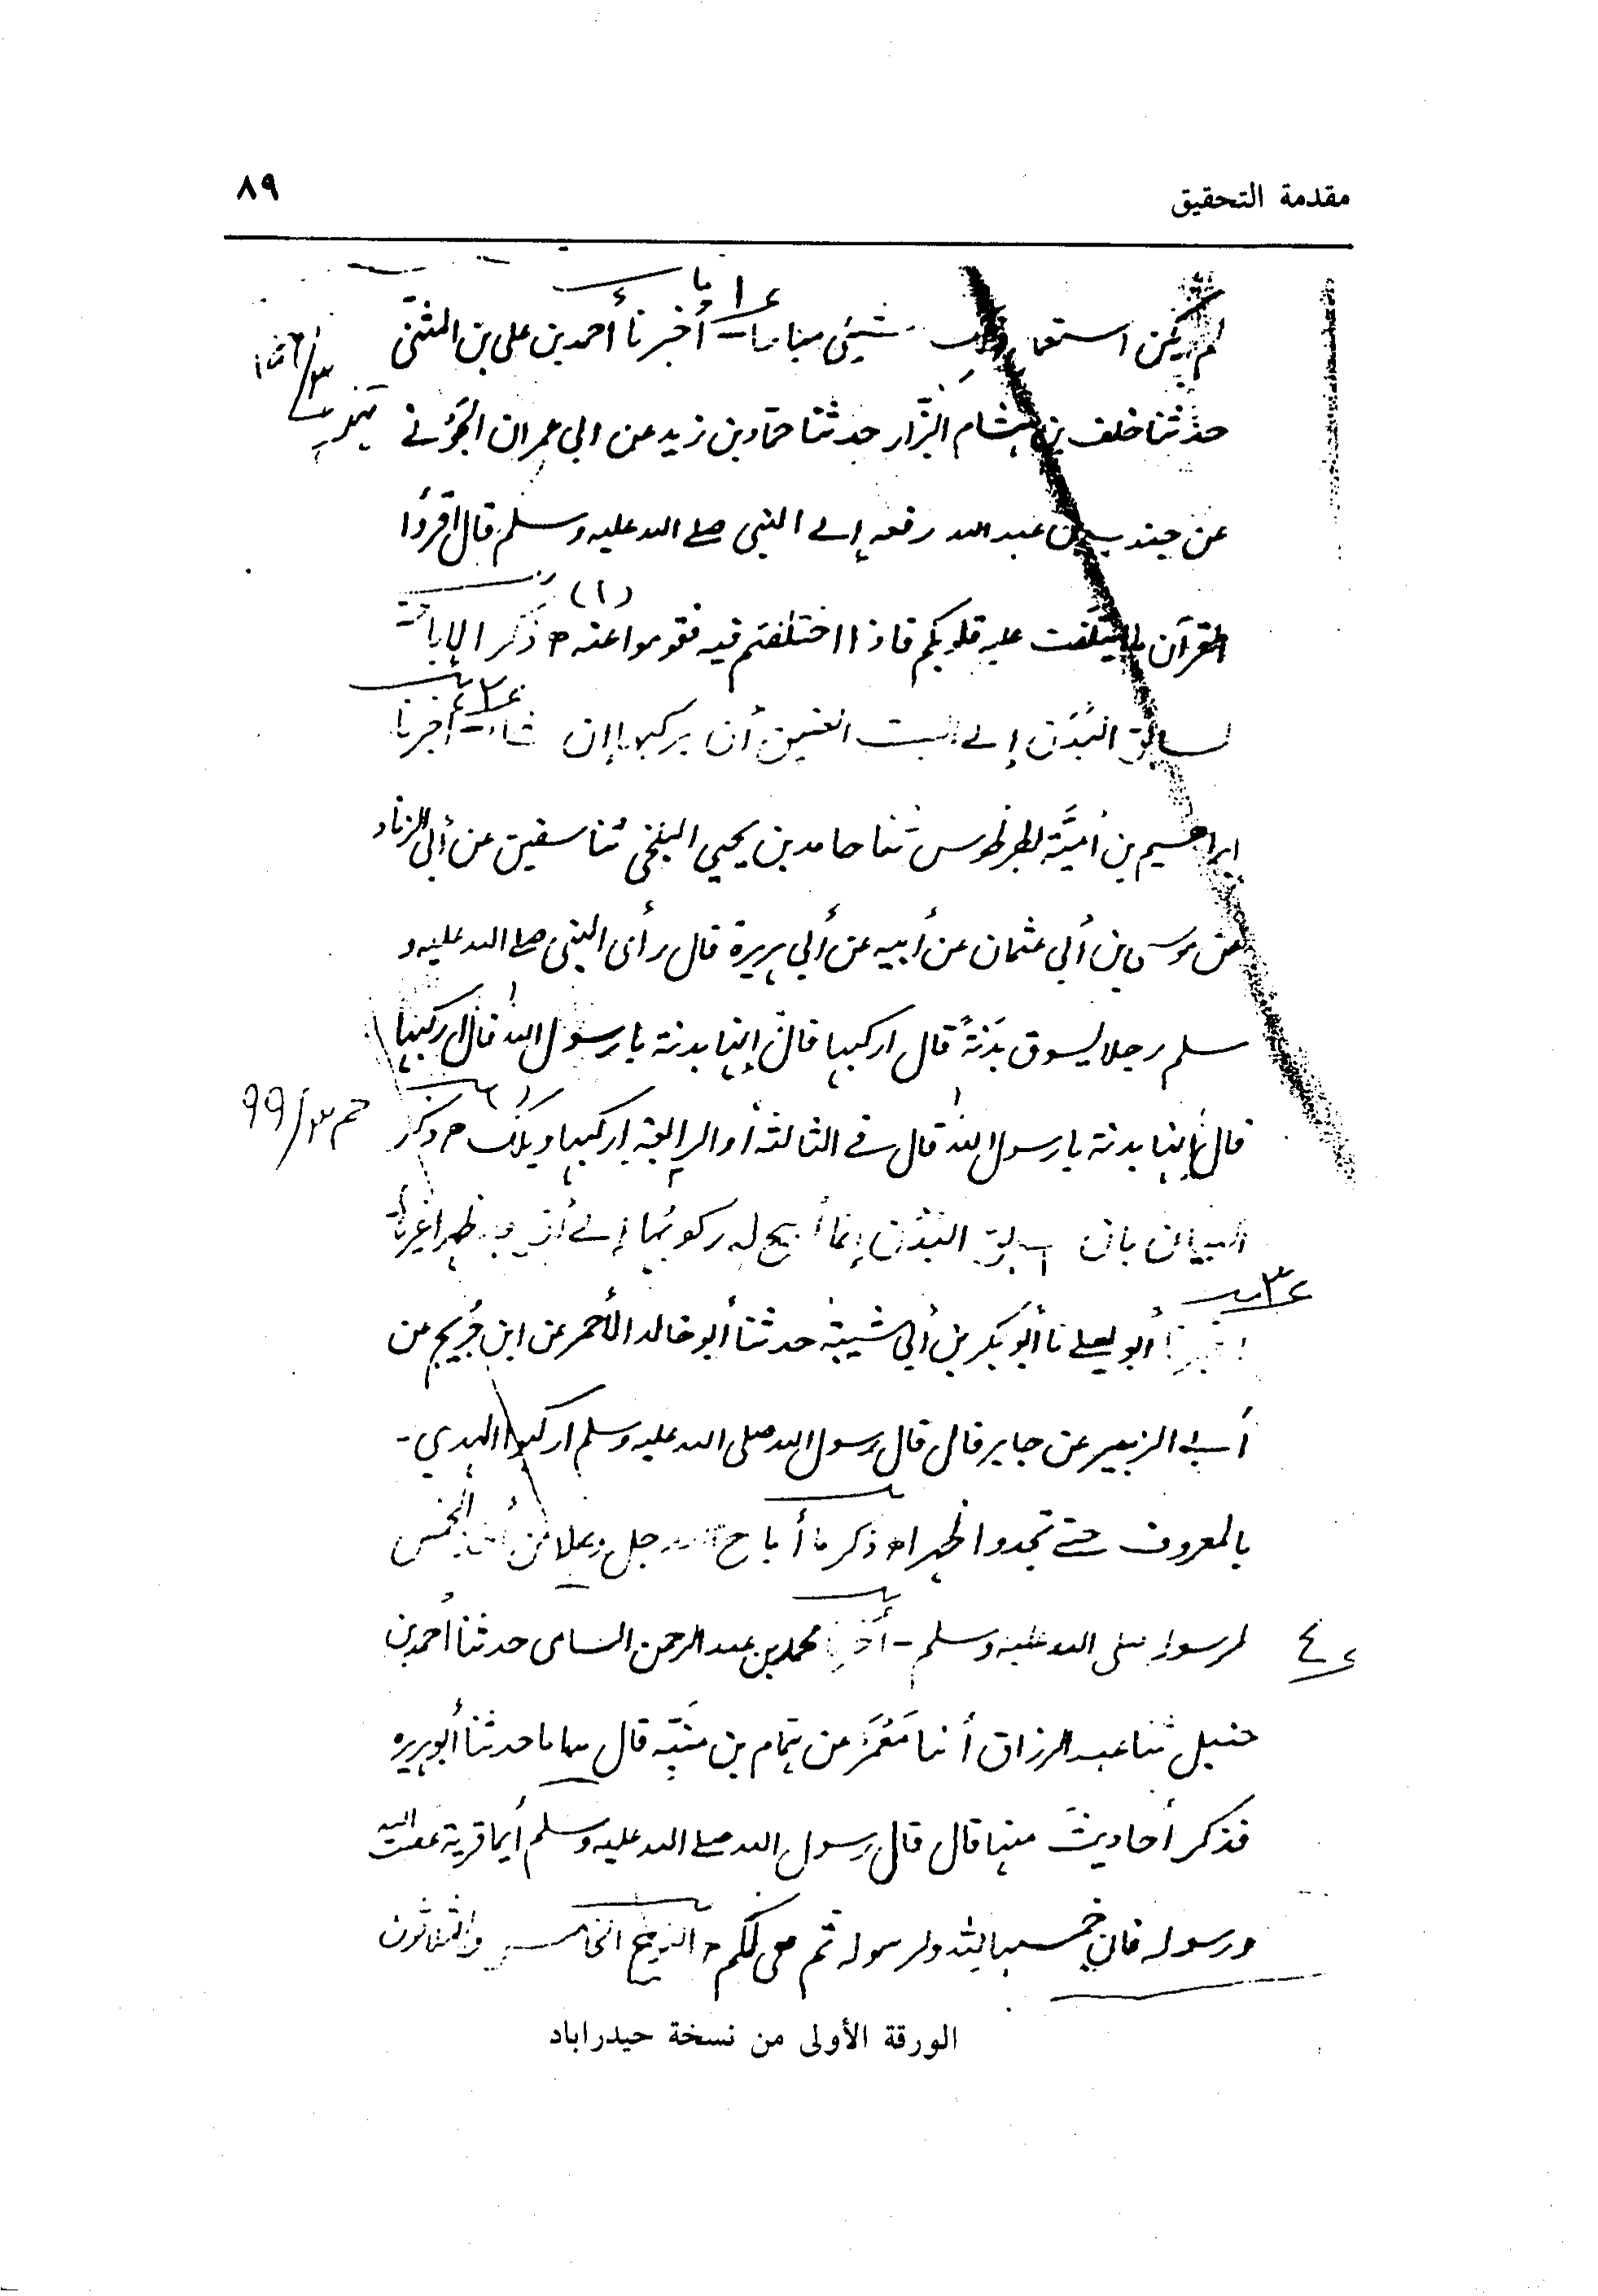 مقدمة التحقيق
٨٩
لم يكن استعمال ذلك شيئى مباحا - أخبرنا أحمد بن على بن المثنى
حدثنا خلف بن هشام البزّار حدثنا حماد بن زيد عن ابى عمران الجَوْنى
عن جندب بن عبد الله رفعه إلى النبى صلى الله عليه وسلم قال اقرؤا
القرآن ما ائتلفت عليه قلوبكم فاذا اختلفتم فيه فقوموا عنه ذكر الإباحة
(١)
لسايق البُدْن إلى البيت العتيق أن يركبها إن شاء - أخبرنا
ابراهيم بن أميّة بطرطوس ثنا حامد بن يحيى البلخى ثنا سفين عن أبى الزناد
عن موسى بن أبى عثمان عن أبيه عن أبى هريرة قال رأى النبى صلى الله عليه و
سلم رجلا يسوق بَدَنةً قال اركبها قال إنها بدنة يا رسول الله قال اركبها
قال إنها بدنة يا رسول الله قال فى الثالثة أو الرابعة اركبها ويلك ذكر
حم ٣/ ٩٩
البيان بان سايق البُدْن إنما أبيح له ركوبها إلى أن يجد ظهرا غيرها
أخبرنا أبو يعلى نا أبو بكر بن أبى شيبة حدثنا أبو خالد الأحمر عن ابن جُريج عن
أبى الزبير عن جابر قال قال رسول الله صلى الله عليه وسلم اركبوا الهدي -
بالمعروف حتى تجدوا ظهرا ذكر ما أباح الله جل وعلا من الخمس
لرسوله صلى الله عليه وسلم - أخبرنا محمد بن عبد الرحمن السامى حدثنا أحمد بن
حنبل ثنا عبد الرزاق أنا مَعْمَرٌ عن همّام بن منبّه قال هذا ما حدثنا أبو هريرة
فذكر أحاديث منها قال قال رسول الله صلى الله عليه وسلم أيما قرية عصت الله
ورسوله فان خمسها لله ولرسوله ثم هى لكم النوع الخامس والثلاثون
الورقة الأولى من نسخة حيدراباد